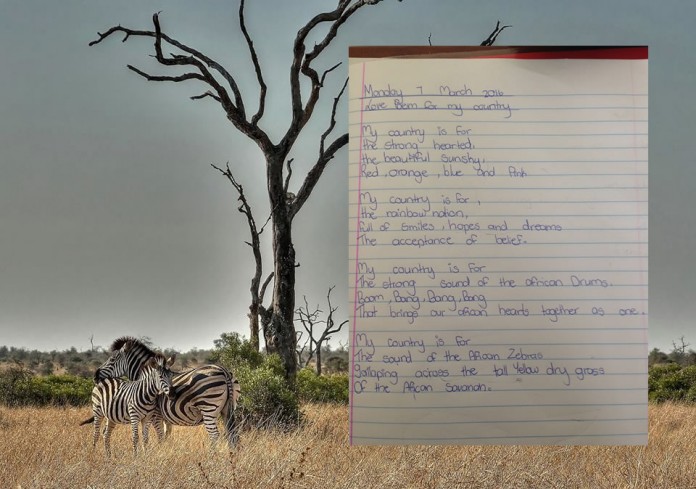 Monday 7 March 2016
Love Poem for my country
My country is for
the strong hearted,
the beautiful Sunshy,
Red, orange, blue and Pink.
My country is for,
the rainbow nation,
full of Smiles, hopes and dreams
The acceptance of belief.
My country is for
The strong sound of the african Drums.
Boom, Bang, Bang, Bang
That brings our african hearts together as one.
My country is for
The sound of the African Zebras
galloping across the tall Yellow dry grass
Of the African Savanah.